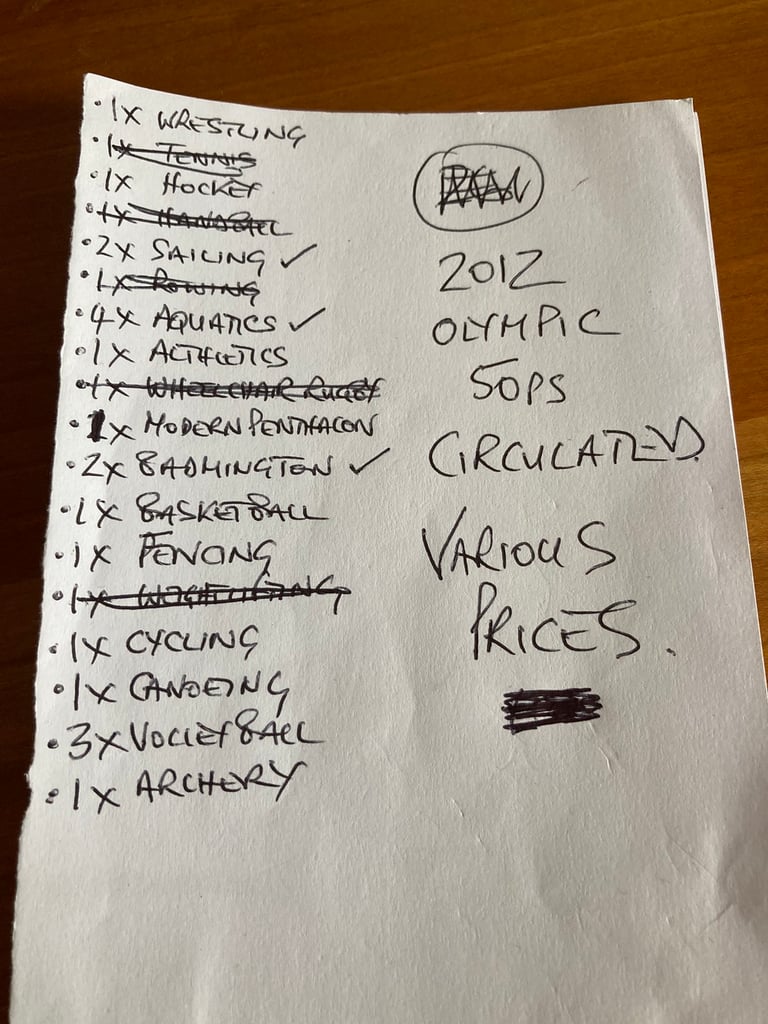 •1x WRESTLING
•1x TENNIS
•1x HOCKEY
•1x HANDBALL
•2x SAILING ✓
•1x ROWING
•4x AQUATICS ✓
•1x ALTHLETICS
•1x WHEELCHAIR RUGBY
•1x MODERN PENTHACON
•2x BADMINGTON ✓
•1x BASKETBALL
•1x FENCING
•1x WEIGHTLIFTING
•1x CYCLING
•1x CANOEING
•3x VOLLEYBALL
•1x ARCHERY
2012
OLYMPIC
50PS
CIRCULATED.
VARIOUS
PRICES.